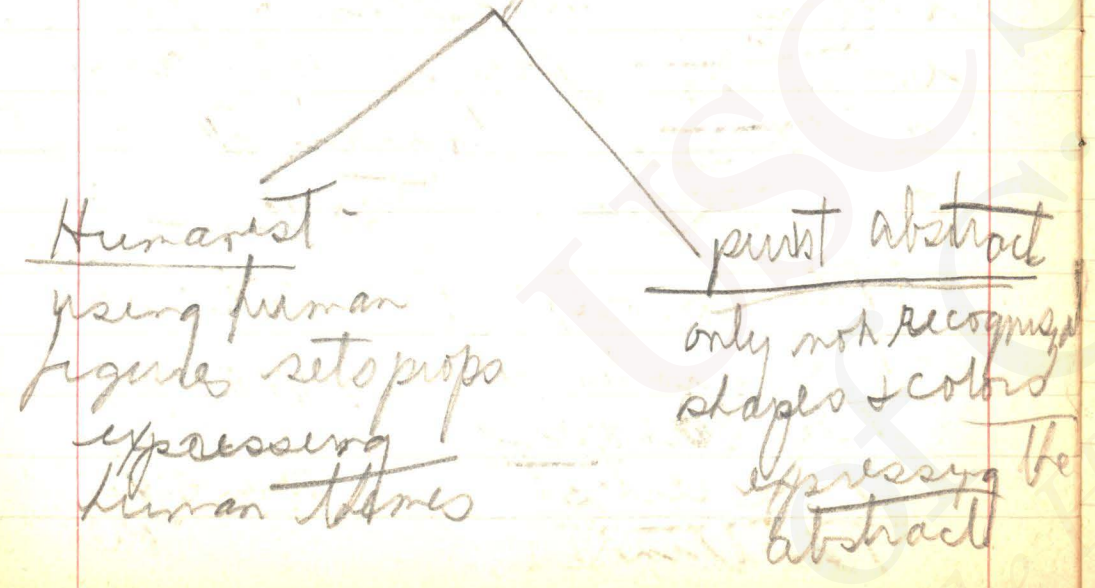 Humanist -
using human
figures sets props
expressing
human themes
purist abstract
only non recogniz
shapes & colors
expressing the
abstract
USC